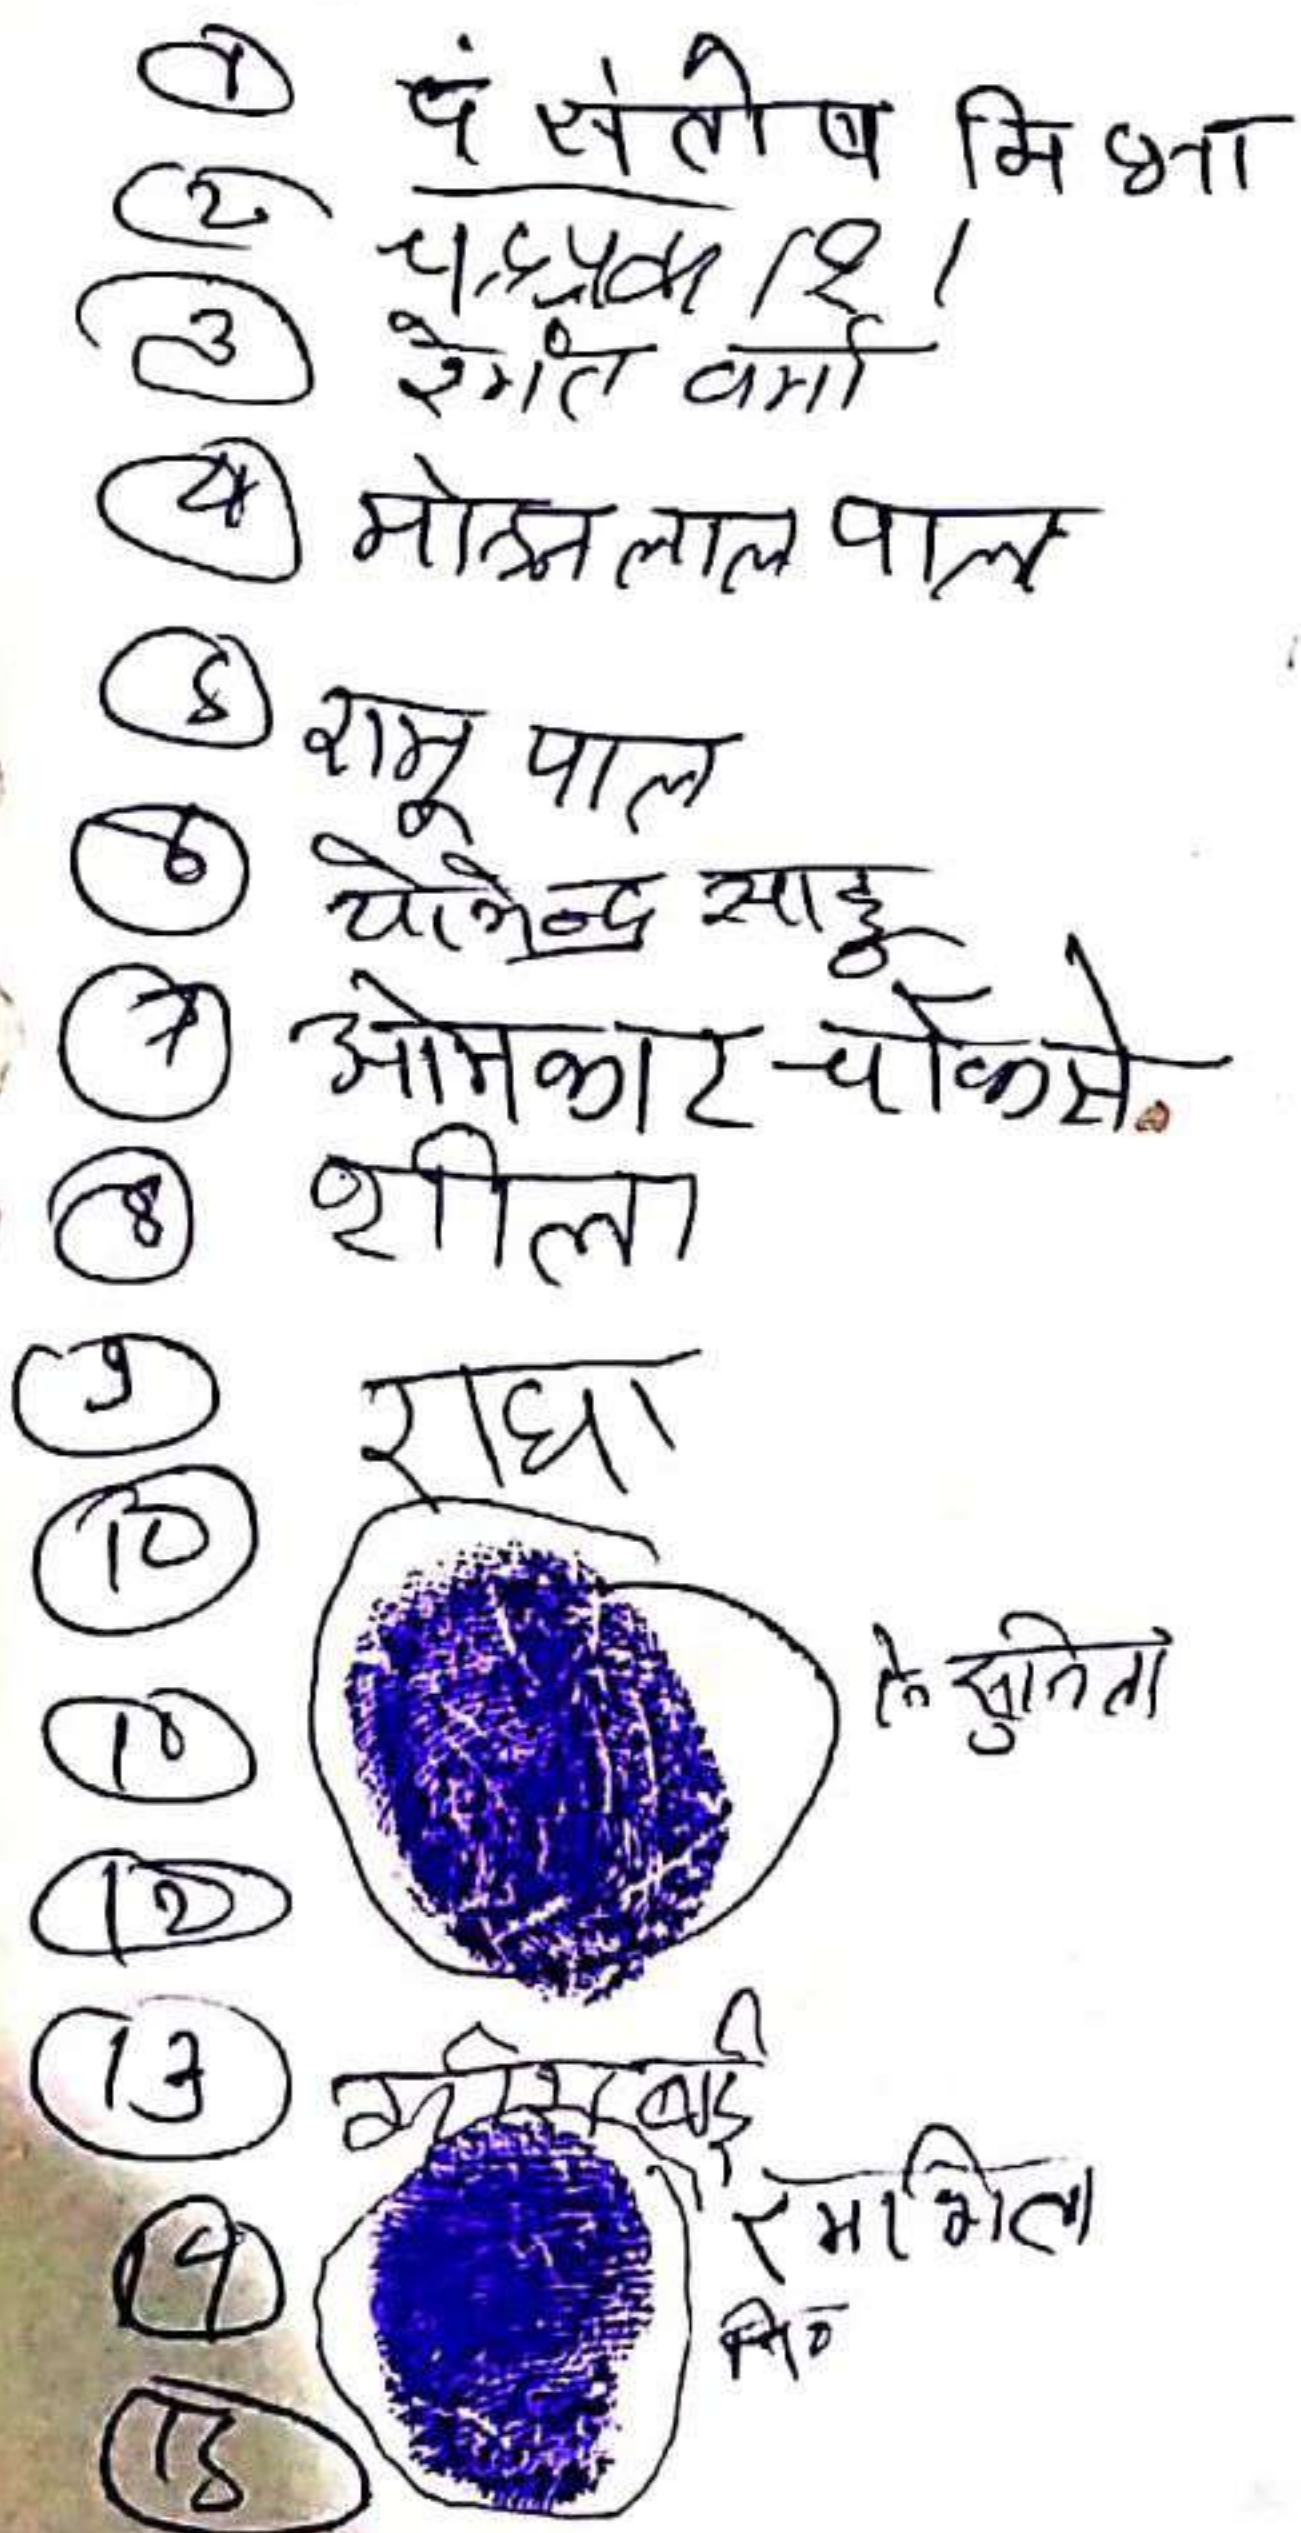 1 पं संतोष मिश्रा
2 चन्द्रप्रकाश
3 हेमंत वर्मा
4 मोहनलाल पाल
5 रामू पाल
6 योगेन्द्र साहू
7 ओमकार चौकसे
8 शीला
9 राधा
10
नि सुनिता
10
12
13 बाई
रमा
14 नि०
15